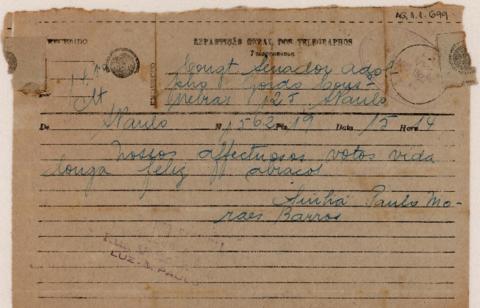 AG.1.1-699
REPARTIÇÃO GERAL DOS TELEGRAPHOS
Telegramma
Congt Senador Adol
pho Gordo Cons
Nebias 125 SPaulo
De SPaulo N. 1562 Pls. 19 Data 15 Hora 14
Nossos affectuosos votos vida
longa feliz abraços
Sinhá Paulo Mo-
raes Barros
LUZ-S. PAULO